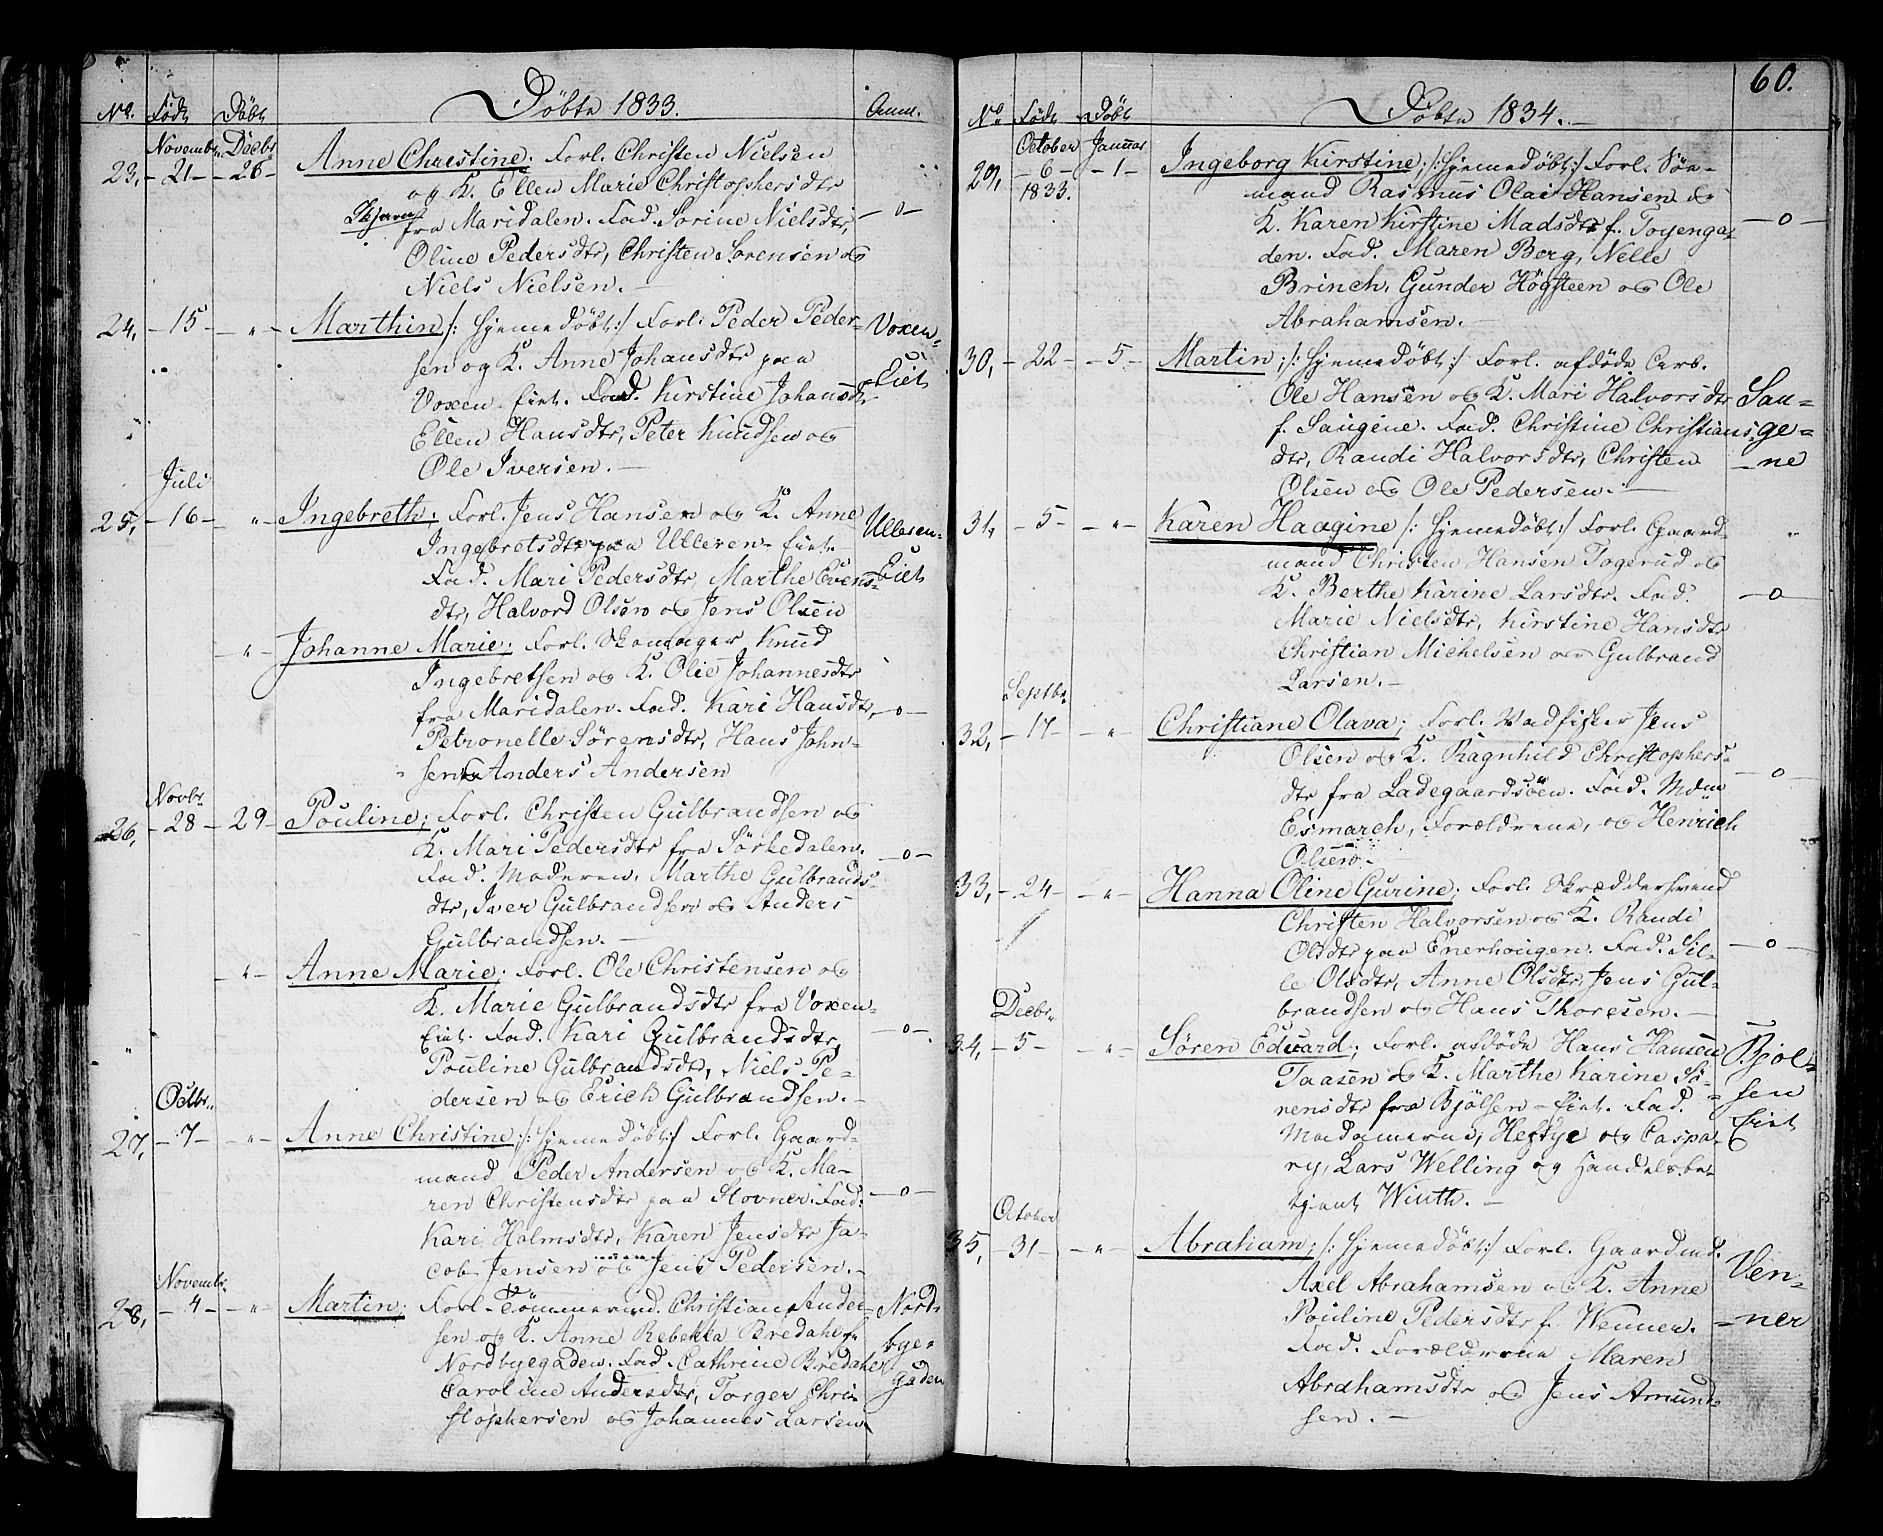 Döbte 1833.
No. Födt Döbt Anm.
Novembr. Decbr
23, -21- -26- Anne Christine; Forl. Christen Nielsen
og K. Ellen Marie Christophersdtr
Skjerven fra Maridalen. Fad. Sorine Nielsdtr, -o-
Oline Pedersdtr, Christen Sorensen og
Niels Nielsen.-
24, -15- -"- Marthin /: hjemmedöbt:/ Forl. Peder Peder- Voxen-
sen og K. Anne Johansdtr paa Eiet
Voxen-Eiet. Fad. Kirstine Johansdtr
Ellen Hansdtr, Peter Knudsen og
Ole Iversen.-
Juli
25, -16- "- Ingebreth; Forl. Jens Hansen og K. Anne Ulleren-
Ingebretsdtr paa Ulleren-Eiet.- Eiet
Fad. Mari Pedersdtr, Marthe Evens-
dtr, Halvord Olsen og Jens Olsen
-"- Johanne Marie; Forl. Skomager Knud
Ingebretsen og K. Olie Johannesdtr
fra Maridalen. Fad. Kari Hansdtr, -o-
Petronelle Sörensdtr, Hans John-
sen og Anders Andersen
Novbr.
26, -28- 29- Pouline; Forl. Christen Gulbrandsen og
K. Mari Pedersdtr fra Sörkedalen. -o-
Fad. Moderen, Marthe Gulbrands-
dtr, Iver Gulbrandsen og Anders
Gulbrandsen.-
-"- Anne Marie; Forl. Ole Christensen og
K. Marie Gulbrandsdtr fra Voxen-
Eiet. Fad. Kari Gulbrandsdtr, -o-
Pouline Gulbrandsdtr, Niels Pe-
dersen og Erich Gulbrandsen.-
Octbr.
27, -7- -"- Anne Christine; /: hjemmedöbt:/ Forl. Gaard-
mand Peder Andersen og K. Ma-
ren Christensdtr paa Stovner. Fad. -o-
Kari Holmsdtr, Karen Jensdtr Ja-
cob Jensen og Jens Pedersen.-
Novembr.
28, -4- -"- Martin; Forl. Tömmermd. Christian Ander- Nord-
sen og K. Anne Rebekka Bredahl f. bye-
Nordbyegaden. Fad. Cathrine Bredahl gaden
Caroline Andersdtr, Torger Chri-
stophersen og Johannes Larsen
60.
Döbte 1834.
No. Födt Döbt
October Januar
29, -6- -1- Ingeborg Kirstine; /: hjemmedöbt:/ Forl. Söe-
1833. mand Rasmus Olai Hansen og
K. Karen Kirstine Madsdtr f. Toyenga- -o-
den. Fad. Maren Berg, Nelle
Brinch, Gunder Högsteen og Ole
Abrahamsen.-
30, -22- -5- Martin; /: hjemmedöbt:/ Forl. afdöde Arb.
Ole Hansen og K. Mari Halvorsdtr Sau-
f. Saugene. Fad. Christine Christians- ge-
dtr, Randi Halvorsdtr, Christen -ne
Olsen og Ole Pedersen.-
31, -5- -"- Karen Haagine /: hjemmedöbt:/ Forl. Gaard-
mand Christen Hansen Togerud og
K. Berthe Karine Larsdtr. Fad. -o-
Marie Nielsdtr, Kirstine Hansdtr
Christian Michelsen og Gulbrand
Larsen.-
Septbr.
32, -17- -"- Christiane Olava; Forl. Vadfisker Jens
Olsen og K. Ragnhild Christophers-
dtr fra Ladegaardsöen. Fad. Mdm -o-
Esmarch, Forældrene, og Henrich
Olsen.-
33, -24- -"- Hanna Oline Gurine; Forl. Skræddersvend
Christen Halvorsen og K. Randi
Olsdtr paa Enerhougen. Fad. Sil- -o-
le Olsdtr, Anne Olsdtr, Jens Gul-
brandsen og Hans Thoresen.-
Decbr.
34, -5- -"- Sören Edvard; Forl. afdöde Hans Hansen Bjöl-
Taasen og K. Marthe Karine Sö- -sen
rensdtr fra Bjölsen-Eiet. Fad. Eiet
Madamerne, Heftye og Caspa-
ry, Lars Welling og Handelsbe-
tjent Winth.-
October
35, -31- -"- Abraham; /: hjemmedöbt:/ Forl. Gaardmd.
Axel Abrahamsen og K. Anne Ven-
Pouline Pedersdtr f. Wenner. -ner
Fad. Forældrene Maren
Abrahamsdtr og Jens Amund-
sen.-